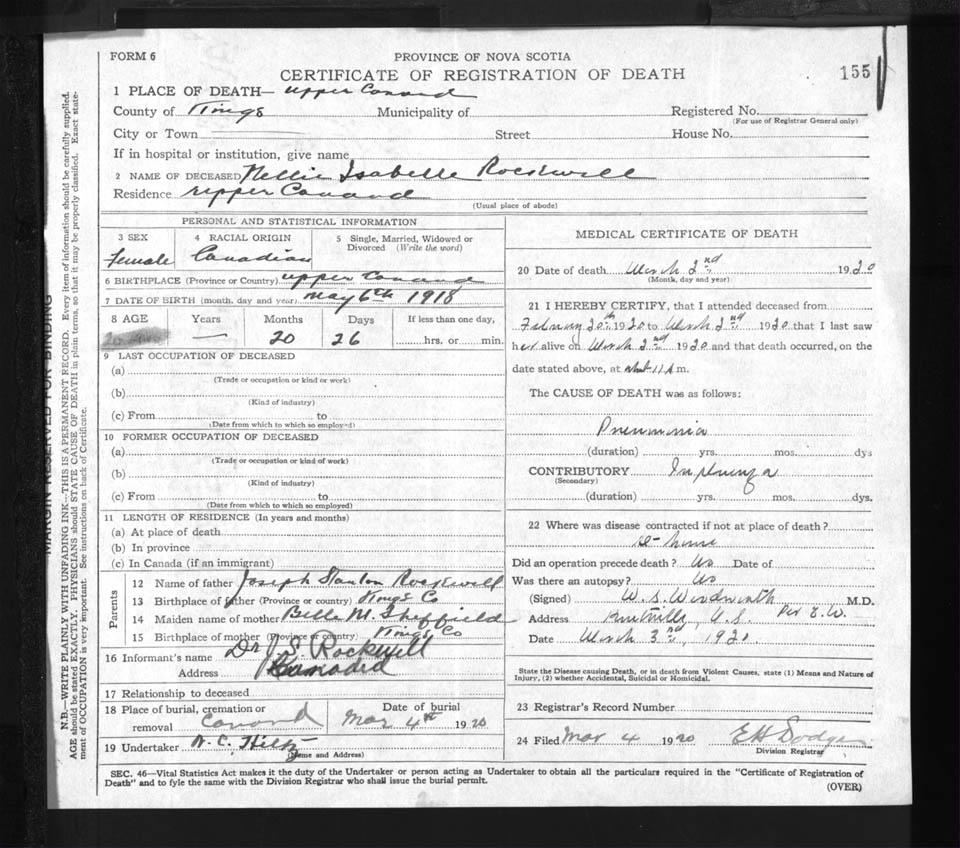 FORM 6
PROVINCE OF NOVA SCOTIA
CERTIFICATE OF REGISTRATION OF DEATH
155
1 PLACE OF DEATH— Upper Canard
County of Kings Municipality of Registered No.
(For use of Registrar General only)
City or Town Street House No.
If in hospital or institution, give name
2 NAME OF DECEASED Nellie Isabelle Rockwell
Residence Upper Canard
(Usual place of abode)
PERSONAL AND STATISTICAL INFORMATION
3 SEX 4 RACIAL ORIGIN 5 Single, Married, Widowed or Divorced (Write the word)
Female Canadian
6 BIRTHPLACE (Province or Country) Upper Canard
7 DATE OF BIRTH (month, day and year) May 6th 1918
8 AGE Years Months Days If less than one day,
— 20 26 hrs. or min.
9 LAST OCCUPATION OF DECEASED
(a)
(Trade or occupation or kind or work)
(b)
(Kind of industry)
(c) From to
(Date from which to which so employed)
10 FORMER OCCUPATION OF DECEASED
(a)
(Trade or occupation or kind of work)
(b)
(Kind of industry)
(c) From to
(Date from which to which so employed)
11 LENGTH OF RESIDENCE (In years and months)
(a) At place of death
(b) In province
(c) In Canada (if an immigrant)
Parents
12 Name of father Joseph Stanton Rockwell
13 Birthplace of father (Province or country) Kings Co
14 Maiden name of mother Bella M. Sheffield
15 Birthplace of mother (Province or country) Kings Co
16 Informant's name Dr J S Rockwell
Address
17 Relationship to deceased
18 Place of burial, cremation or removal Canard Date of burial Mar 4th 1920
19 Undertaker W. C. Hiltz
(Name and Address)
MEDICAL CERTIFICATE OF DEATH
20 Date of death March 2nd 1920
(Month, day and year)
21 I HEREBY CERTIFY, that I attended deceased from
20th 1920 to March 2nd 1920 that I last saw
her alive on March 2nd 1920 and that death occurred, on the
date stated above, at about 11 A m.
The CAUSE OF DEATH was as follows:
Pneumonia
(duration) yrs. mos. dys
CONTRIBUTORY Influenza
(Secondary)
(duration) yrs. mos. dys.
22 Where was disease contracted if not at place of death?
at home
Did an operation precede death? No Date of
Was there an autopsy? No
(Signed) W. S. Woodworth M.D.
Address Kentville, N.S. Per E.W.
Date March 3rd, 1920
State the Disease causing Death, or in death from Violent Causes, state (1) Means and Nature of
Injury, (2) whether Accidental, Suicidal or Homicidal.
23 Registrar's Record Number
24 Filed Mar 4 1920 E H Dodge
Division Registrar
SEC. 46—Vital Statistics Act makes it the duty of the Undertaker or person acting as Undertaker to obtain all the particulars required in the "Certificate of Registration of
Death" and to fyle the same with the Division Registrar who shall issue the burial permit.
(OVER)
MARGIN RESERVED FOR BINDING
N.B.—WRITE PLAINLY WITH UNFADING INK—THIS IS A PERMANENT RECORD. Every item of information should be carefully supplied.
AGE should be stated EXACTLY. PHYSICIANS should STATE CAUSE OF DEATH in plain terms, so that it may be properly classified. Exact state-
ment of OCCUPATION is very important. See instructions on back of Certificate.